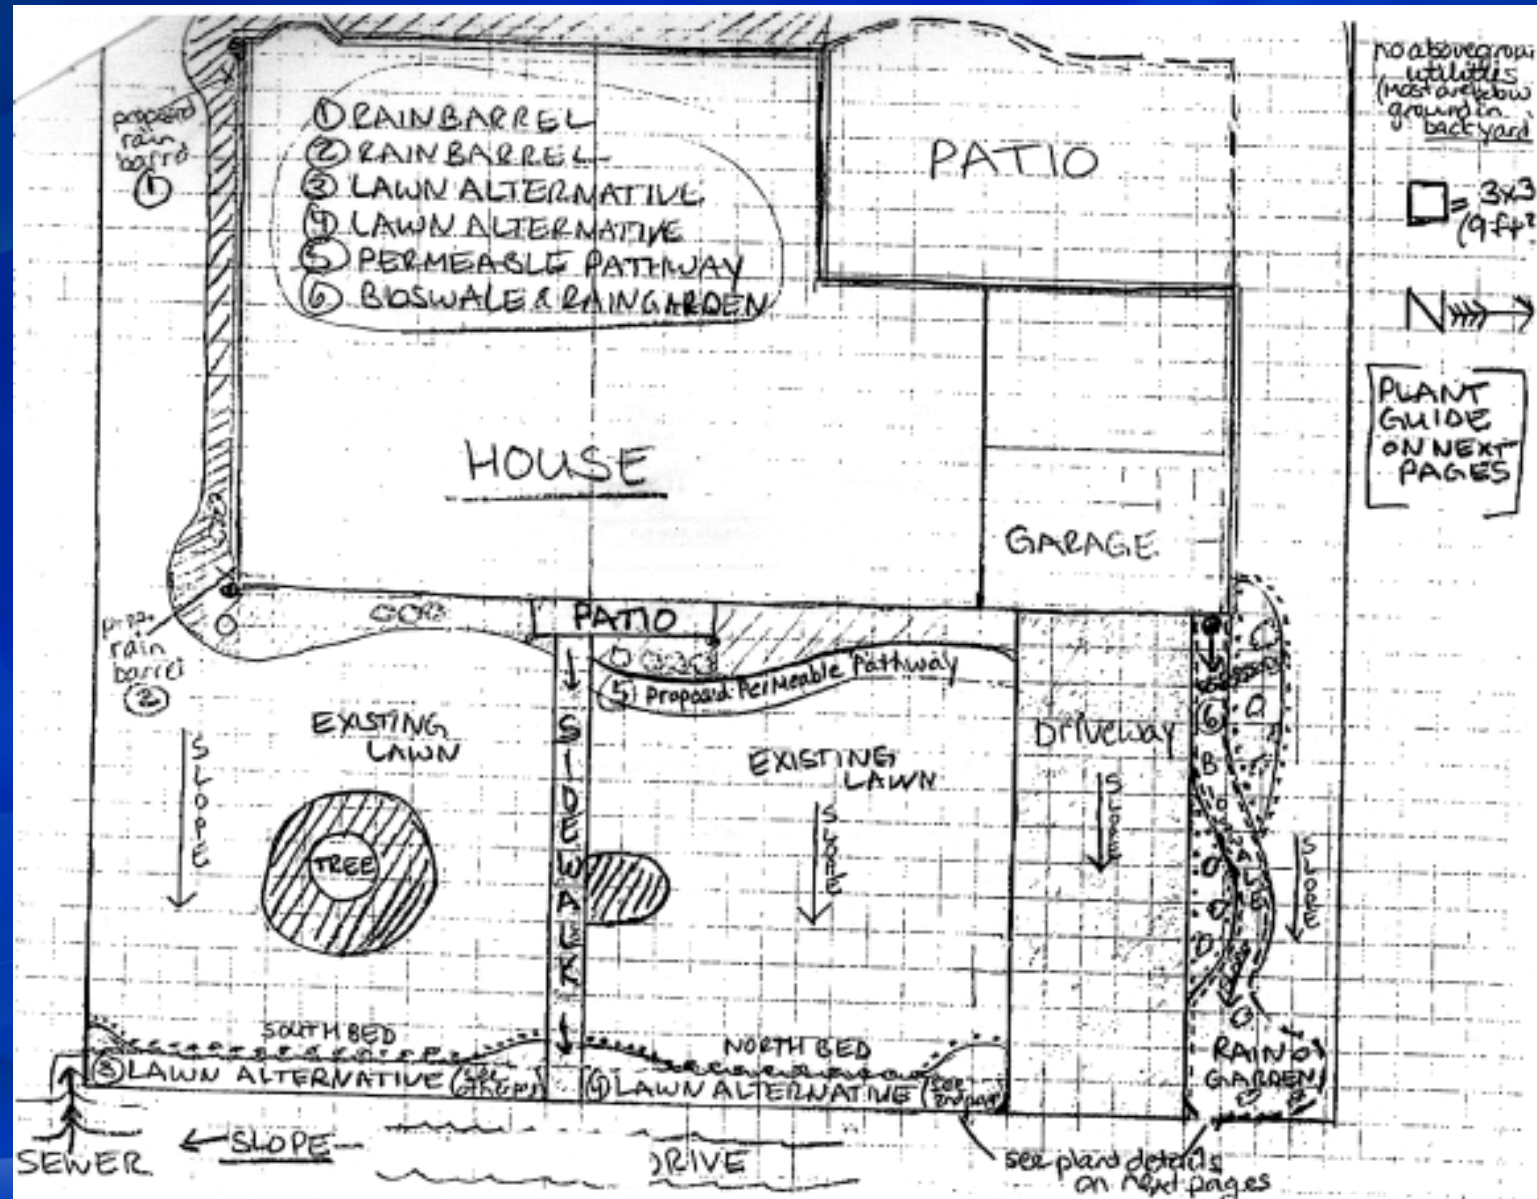 ① RAIN BARREL
② RAIN BARREL
③ LAWN ALTERNATIVE
④ LAWN ALTERNATIVE
⑤ PERMEABLE PATHWAY
⑥ BIOSWALE & RAINGARDEN
PATIO
utilities
(most are below
ground in
backyard
= 3x3
(9 ft²
N
PLANT
GUIDE
ON NEXT
PAGES
proposed
rain
barrel
①
HOUSE
GARAGE
PATIO
rain
barrel
②
⑤ Proposed Permeable Pathway
EXISTING
LAWN
SLOPE
TREE
SIDEWALK
EXISTING
LAWN
SLOPE
Driveway
SLOPE
⑥
BIOSWALE
SLOPE
SOUTH BED
③ LAWN ALTERNATIVE
NORTH BED
④ LAWN ALTERNATIVE (see 2nd page)
RAIN
GARDEN
SEWER
SLOPE
DRIVE
see plant details
on next pages